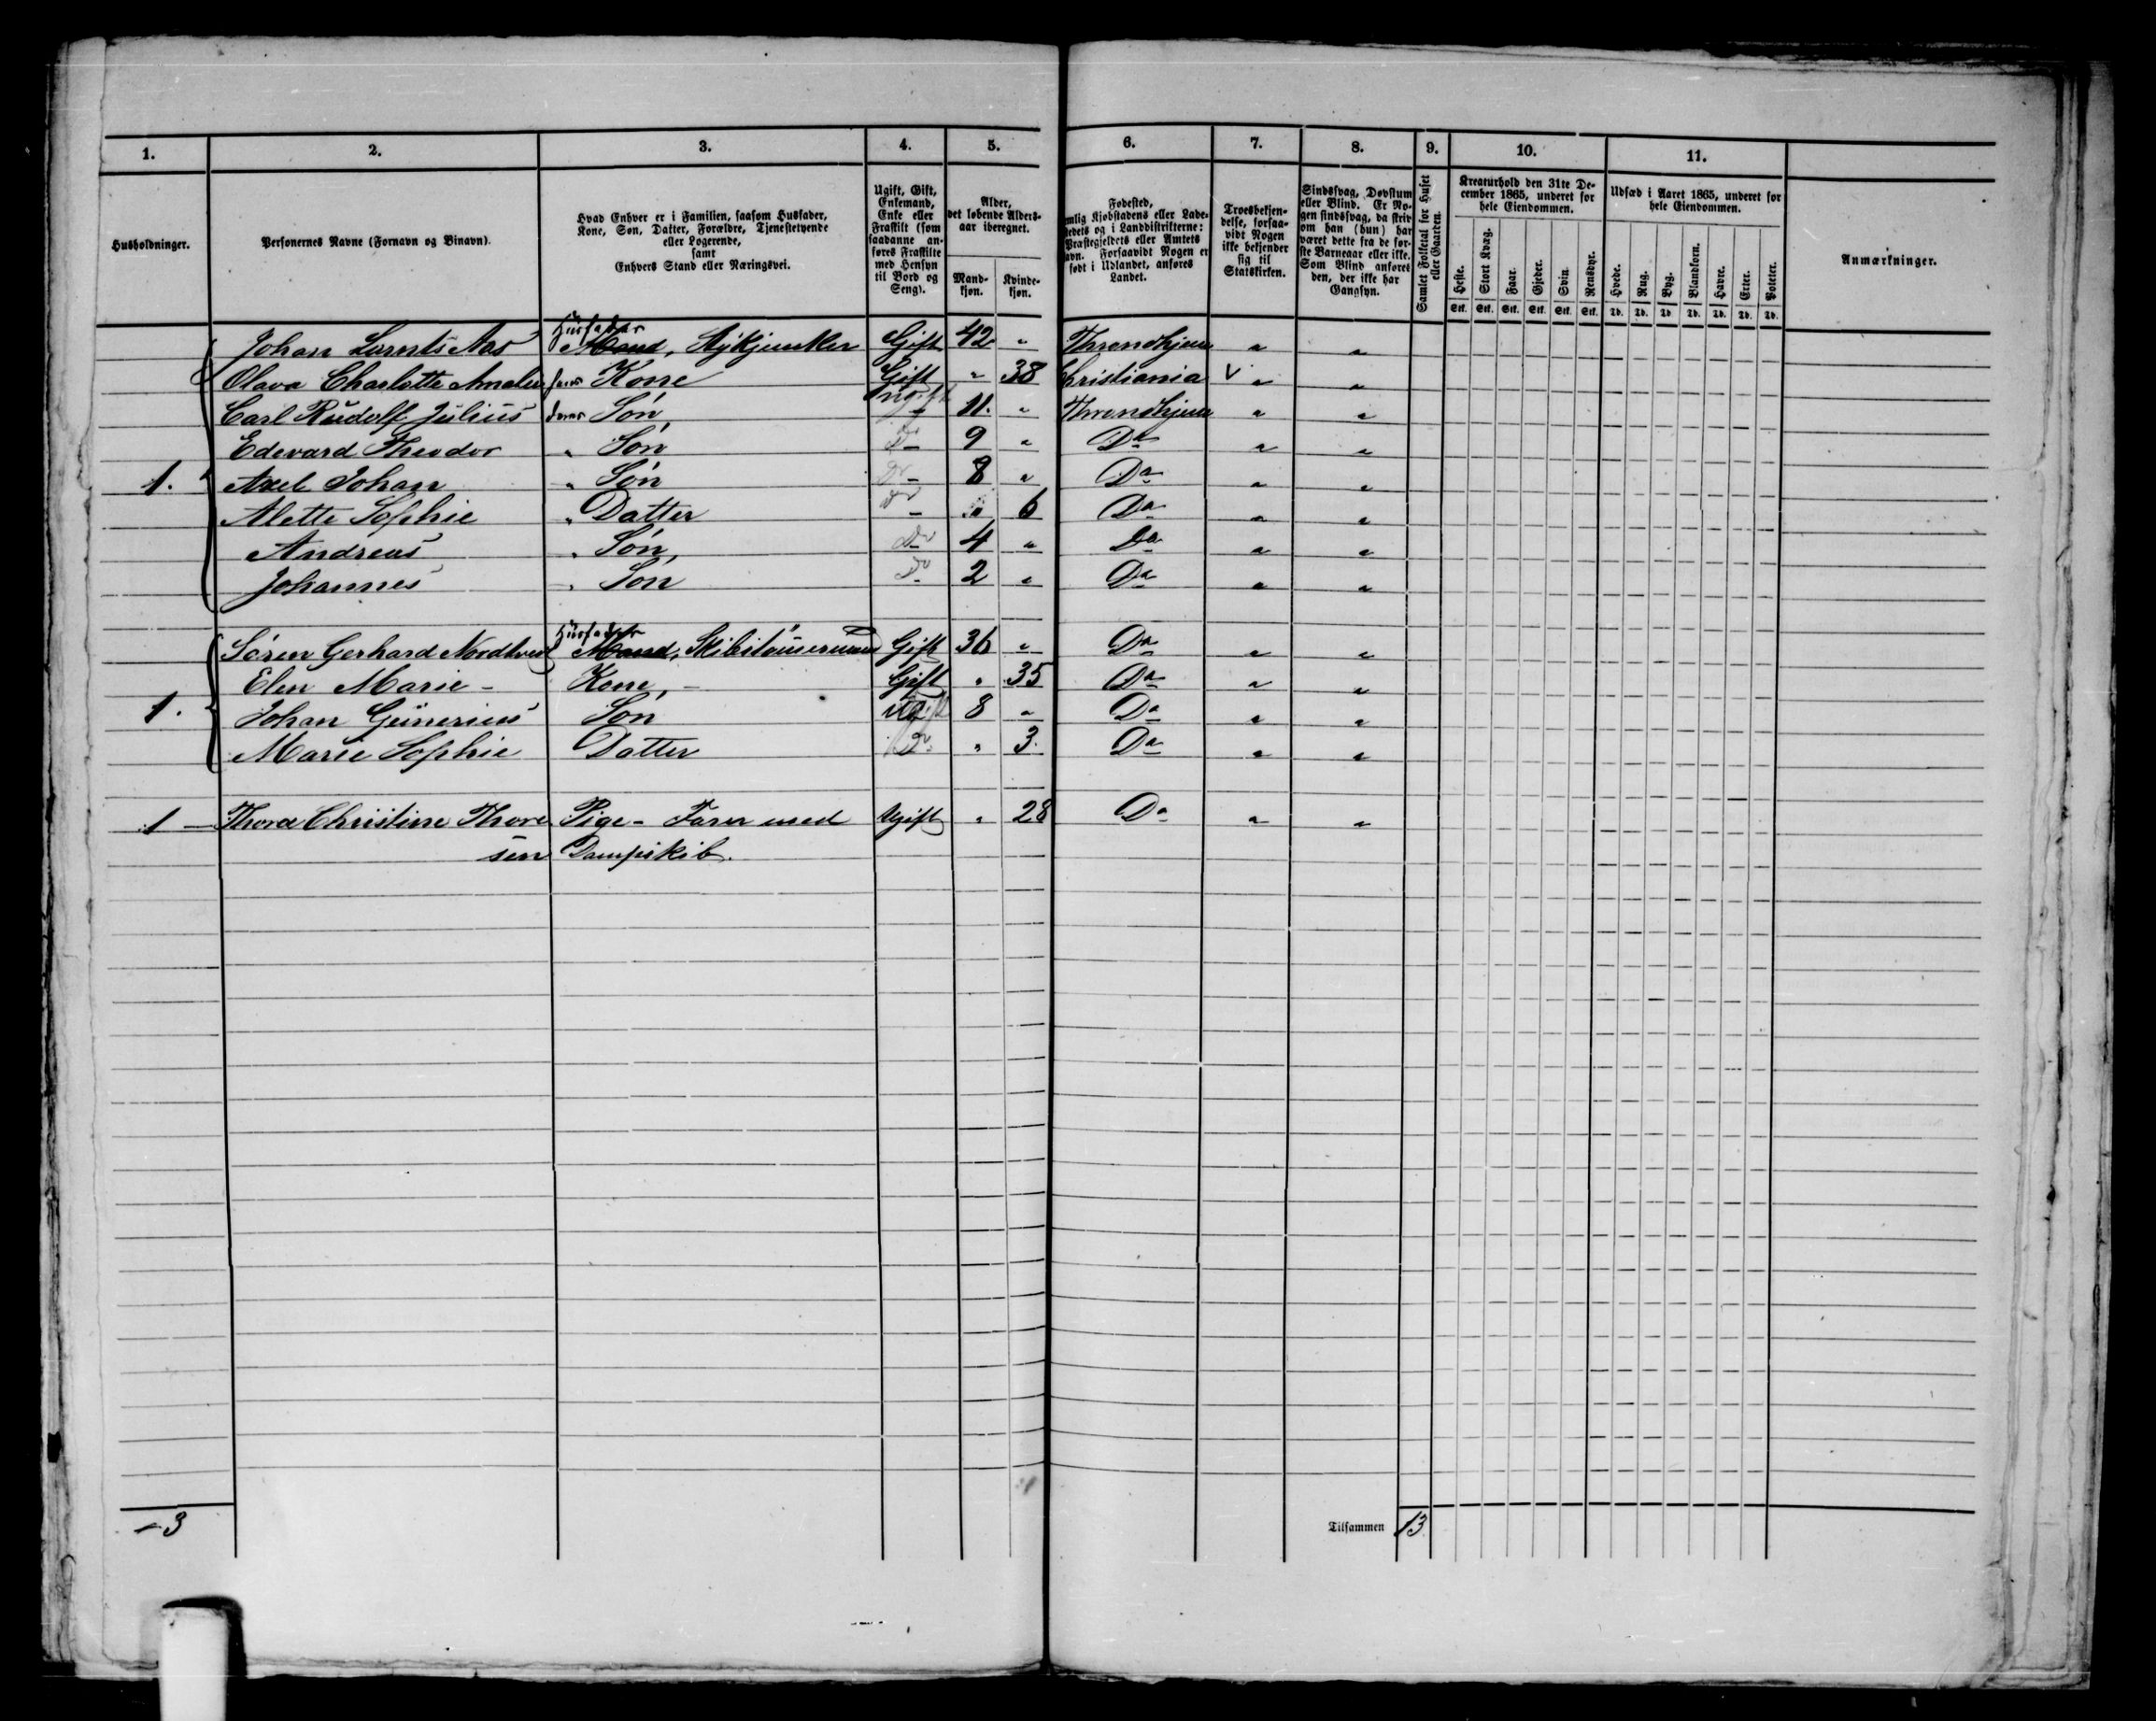 1. 2. 3. 4. 5. 6. 7. 8. 9. 10. 11.
Husholdninger.
Personernes Navne (Fornavn og Binavn).
Hvad Enhver er i Familien, saasom Husfader,
Kone, Søn, Datter, Forældre, Tjenestetyende
eller Logerende,
samt
Enhvers Stand eller Næringsvei.
Ugift, Gift,
Enkemand,
Enke eller
Fraskilt (som
saadanne an-
føres Fraskilte
med Hensyn
til Bord og
Seng).
Alder,
det løbende Alders-
aar iberegnet.
Mand-
kjøn.
Kvinde-
kjøn.
Fødested,
nemlig Kjøbstadens eller Lade-
stedets og i Landdistrikterne:
Præstegjeldets eller Amtets
Navn. Forsaavidt Nogen er
født i Udlandet, anføres
Landet.
Troesbekjen-
delse, forsaa-
vidt Nogen
ikke bekjender
sig til
Statskirken.
Sindssvag, Døvstum
eller Blind. Er No-
gen sindssvag, da skriv
om han (hun) har
været dette fra de før-
ste Barneaar eller ikke.
Som Blind anføres
den, der ikke har
Gangsyn.
Samlet Folketal for Huset
eller Gaarden.
Kreaturhold den 31te De-
cember 1865, underet for
hele Eiendommen.
Heste. Stort Kvæg. Faar. Gjeder. Svin. Rensdyr.
Stk. Stk. Stk. Stk. Stk. Stk.
Udsæd i Aaret 1865, underet for
hele Eiendommen.
Hvede. Rug. Byg. Blandkorn. Havre. Erter. Poteter.
Td. Td. Td. Td. Td. Td. Td.
Anmærkninger.
Husfader
Johan Lorents Aas Mand, Gift 42 " Throndhjem " "
Olava Charlotte Amalie hans Kone Gift " 38 Cristiania v " "
Carl Rudolf Julius deres Søn Ugift 11. " Throndhjem " "
Edevard Theodor " Søn Do 9 " Do " "
1. Axel Johan " Søn Do 8 " Do " "
Alette Sophie " Datter Do " 6 Do " "
Andreas " Søn, Do 4 " Do " "
Johannes " Søn Do 2 " Do " "
Husfader
Søren Gerhard Mand, Gift 36 " Do " "
Elen Marie - Kone, - Gift " 35 Do " "
1. Johan Gunerius Søn Ugift 8 " Do " "
Marie Sophie Datter Do " 3. Do " "
1 - Thora Christine Thore Pige - Farer med Ugift " 28 Do " "
sen Dampskib.
- 3
Tilsammen 13